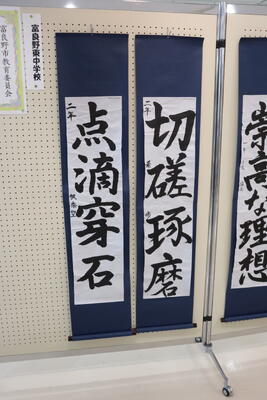 富良野市教育委員会
富良野東中学校
点滴穿石
二年
切磋琢磨
二年
崇高な理想